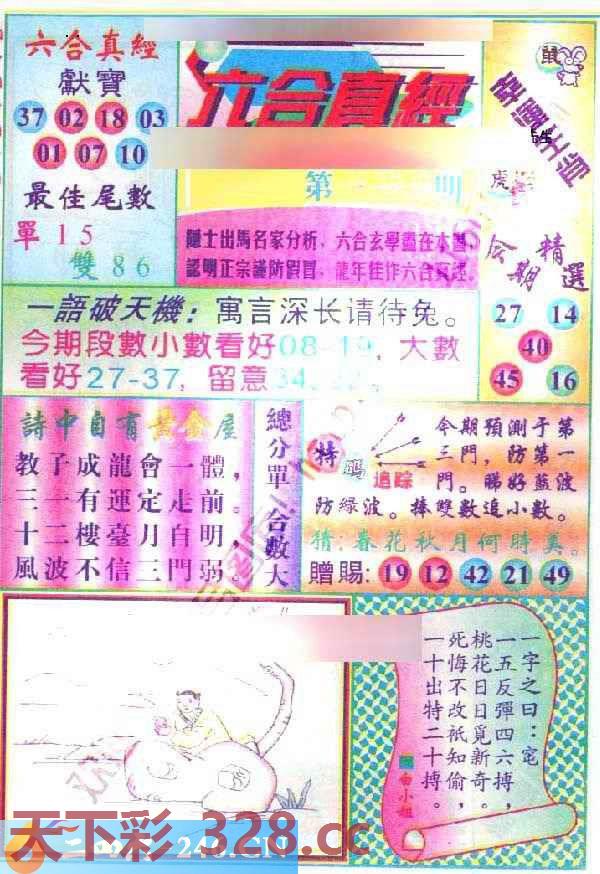 六合真經
獻寶
37 02 18 03
01 07 10
最佳尾數
單15
雙86
六合真經
第 期
隱士出馬名家分析,六合玄學盡在本圖,
認明正宗謹防假冒,龍年佳作六合真經.
鼠
幸運生肖
虎
今期精選
27 14
40
45 16
一語破天機:寓言深长请待兔。
今期段數小數看好08-19,大數
看好27-37,留意34
詩中自有黃金屋
教子成龍會一體,
三一有運定走前。
十二樓臺月自明,
風波不信三門弱。
總分單 合數大
特碼
追踪
令期預測于第
三門,防第一
門。睇好藍波
防緑波。捧雙數追小數。
猜:春花秋月何時美。
贈賜:19 12 42 21 49
一字之曰:宅
一五反彈四六搏,
桃花日日覓新奇。
死悔不改祇知偷,
一十出特二十搏。
白小姐
天下彩 328.cc
246.CN